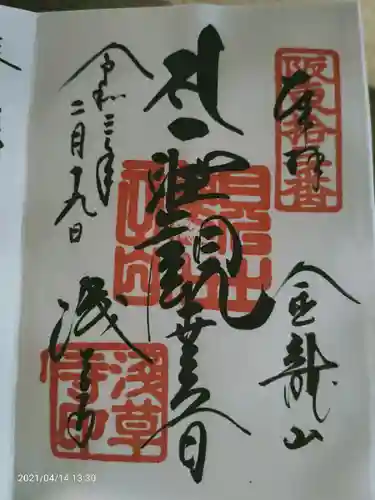 奉拝
阪東拾三番
金龍山
聖観世音
令和三年
二月十九日
浅草寺
浅草寺印
2021/04/14 13:30